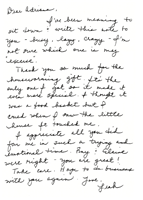 Dear Adriana,
I've been meaning to
sit down & write this note to
you - busy, lazy, crazy - I'm
not sure which one is my
"excuse".
Thank you so much for the
housewarming gift. It's the
only one I got so it made it
even more special. I thought it
was a food basket but I
cried when I saw the little
house. It touched me.
I appreciate all you did
for me in such a trying and
emotional time. Ray &
were right - you are great!
Take care. Hope to do business
with you again! Love,
Leah